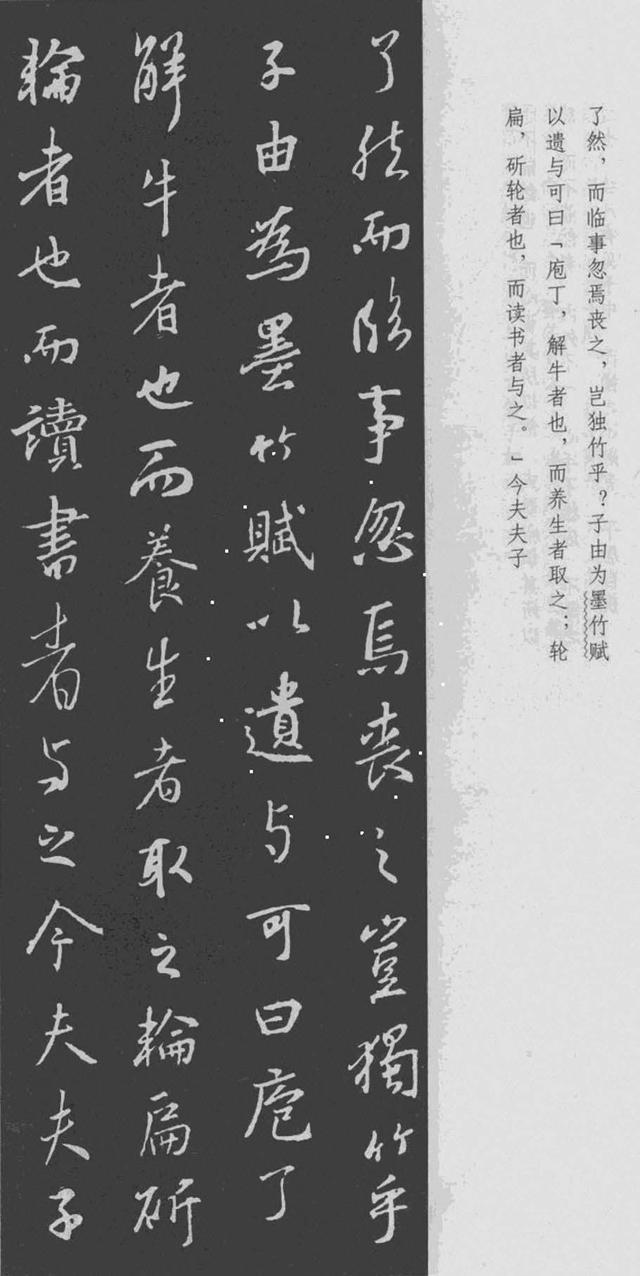 了然，而临事忽焉丧之，岂独竹乎？子由为墨竹赋
以遗与可曰「庖丁，解牛者也，而养生者取之；轮
扁，斫轮者也，而读书者与之。」今夫夫子
了然而臨事忽焉喪之豈獨竹乎
子由為墨竹賦以遺与可曰庖丁
解牛者也而養生者取之輪扁斫
輪者也而讀書者与之今夫夫子